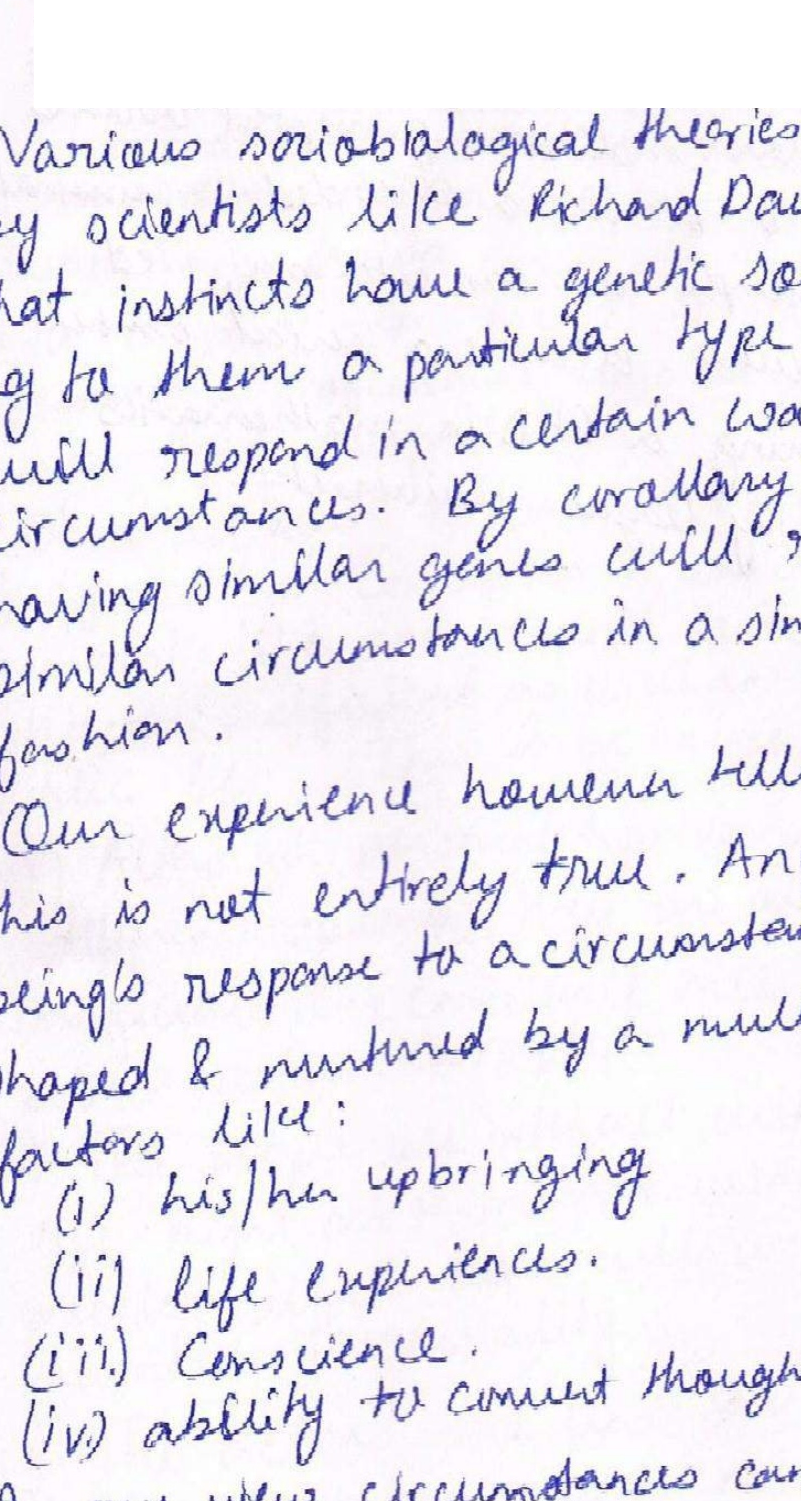 Various sociobialogical theories
y scientists like Richard Daw
hat instincts have a genetic so
g to them a particular type
will respond in a certain wa
ircumstances. By corollary
having similar genes will
similar circumstances in a sim
fashion.
Our experience however tell
his is not entirely true. An
being's response to a circumstan
shaped & nurtured by a mul
factors like:
(i) his/her upbringing
(ii) life experiences.
(iii) Conscience.
(iv) ability to convert though
circumstances can